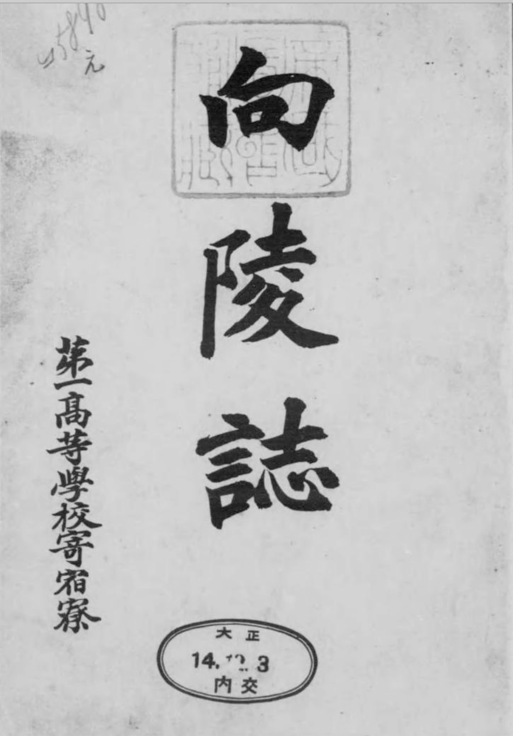 元
向陵誌
第一高等學校寄宿寮
大正
14. 12. 3
内交